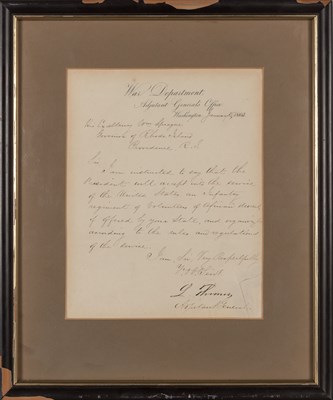 War Department
Adjutant General's Office
Washington, January
His Excellency Gov Sprague
Governor of Rhode Island
Providence, R. I.
Sir,
I am instructed to say that the
President will accept into the service
of the United States an Infantry
regiment of Volunteers of African descent
if offered by your State, and organized
according to the rules and regulations
of the service.
I am Sir Very Respectfully
L. Thomas
Adjutant General